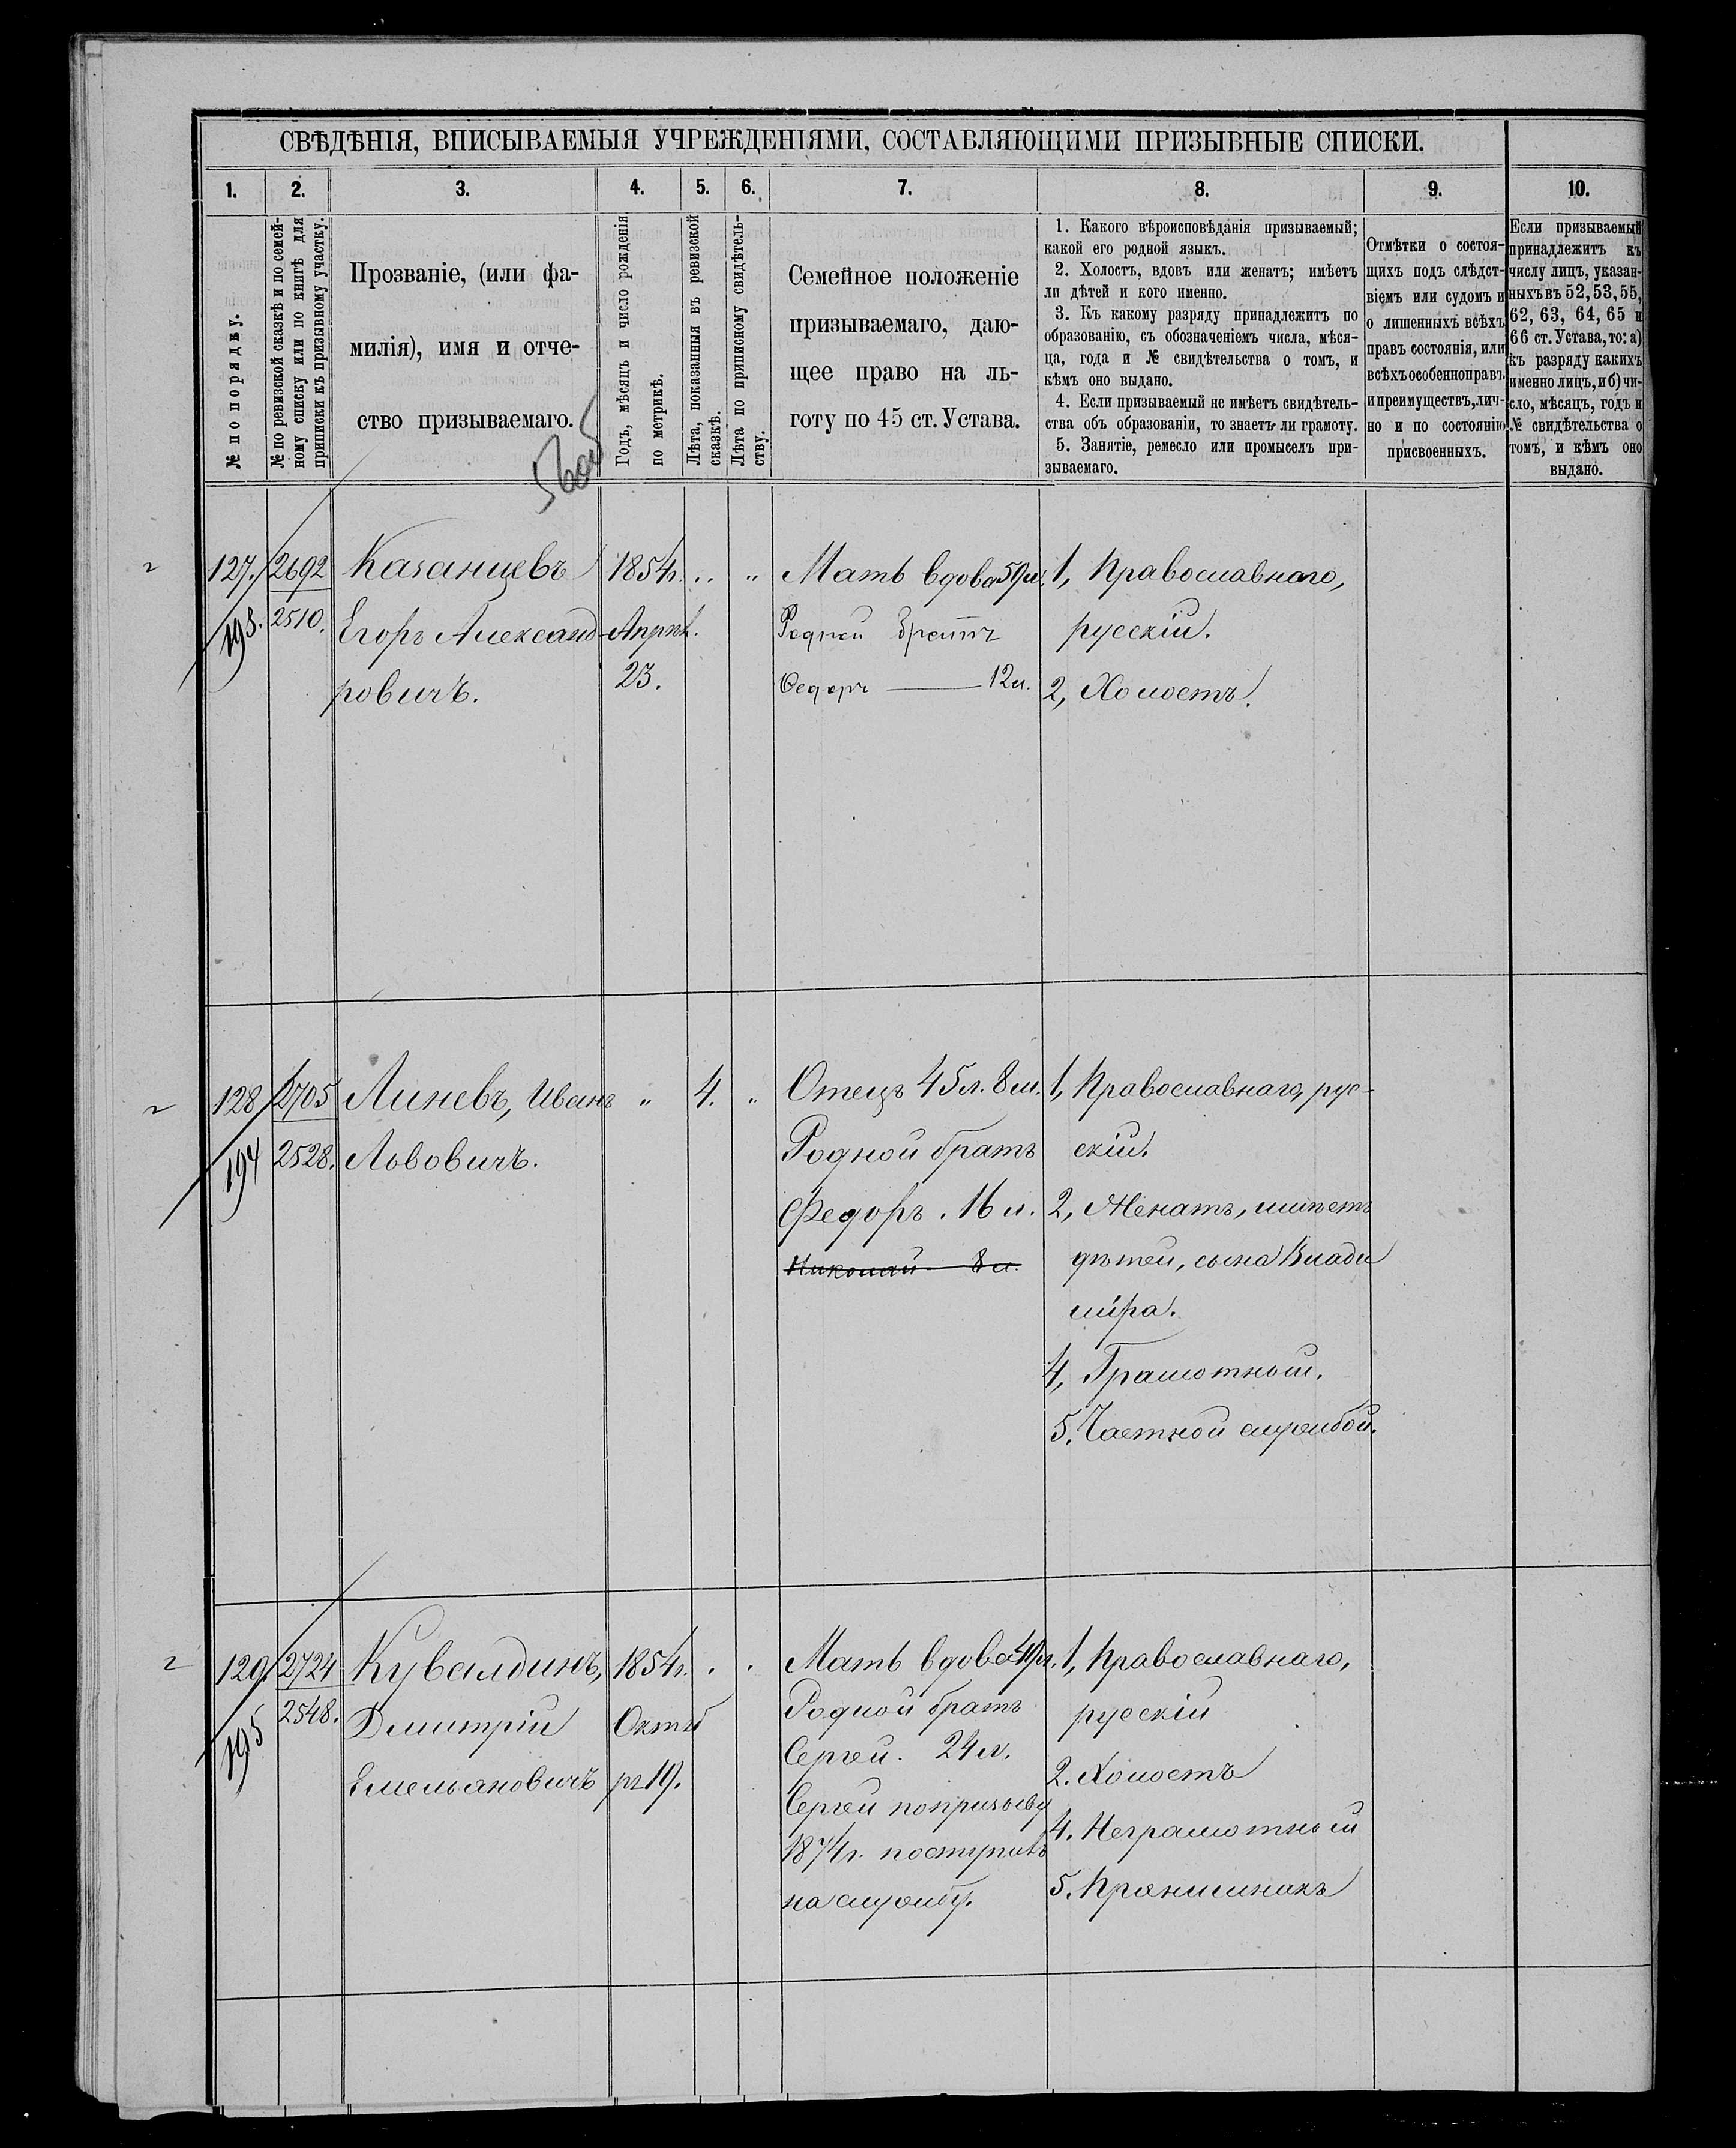 СВѢДѢНІЯ, ВПИСЫВАЕМЫЯ УЧРЕЖДЕНІЯМИ, СОСТАВЛЯЮЩИМИ ПРИЗЫВНЫЕ СПИСКИ.
1.
2.
3.
4.
5.
6.
7.
8.
9.
10.
№ по порядку.
№ по ревизской сказкѣ и по семей-
ному списку или по книгѣ для
приписки къ призывному участку.
Прозваніе, (или фа-
милія), имя и отче-
ство призываемаго.
Годъ, мѣсяцъ и число рожденія
по метрикѣ.
Лѣта, показанныя въ ревизской
сказкѣ.
Лѣта по приписному свидѣтель-
ству.
Семейное положеніе
призываемаго, даю-
щее право на ль-
готу по 45 ст. Устава.
1. Какого вѣроисповѣданія призываемый;
какой его родной языкъ.
2. Холостъ, вдовъ или женатъ; имѣетъ
ли дѣтей и кого именно.
3. Къ какому разряду принадлежитъ по
образованію, съ обозначеніемъ числа, мѣся-
ца, года и № свидѣтельства о томъ, и
кѣмъ оно выдано.
4. Если призываемый не имѣетъ свидѣтель-
ства объ образованіи, то знаетъ ли грамоту.
5. Занятіе, ремесло или промыселъ при-
зываемаго.
Отмѣтки о состоя-
щихъ подъ слѣдст-
віемъ или судомъ и
о лишенныхъ всѣхъ
правъ состоянія, или
всѣхъ особенно правъ
и преимуществъ, лич-
но и по состоянію
присвоенныхъ.
Если призываемый
принадлежитъ къ
числу лицъ, указан-
ныхъ въ 52, 53, 55,
62, 63, 64, 65 и
66 ст. Устава, то: а)
къ разряду какихъ
именно лицъ, и б) чи-
сло, мѣсяцъ, годъ и
№ свидѣтельства о
томъ, и кѣмъ оно
выдано.
127.
193.
2692
2510.
Казанцевъ
Егоръ Александ-
ровичъ.
1854г.
Апрѣл.
23.
„
„
Мать вдова 59л.
Родной братъ
Ѳедоръ — 12л.
1, Православнаго,
русскій.
2, Холостъ.
128
194
2705
2528.
Линевъ, Иванъ
Львовичъ.
„
4.
„
Отецъ 45л. 8м.
Родной братъ
Федоръ. 16л.
Николай — 8л.
1, Православнаго, рус-
скій.
2, Женатъ, имѣетъ
дѣтей, сына Влади
міра.
4, Грамотный.
5. Частной службой.
129.
195
2724
2548.
Кувалдинъ,
Дмитрій
Емельяновичъ
1854г.
Октяб
ря 19.
Мать вдова 49л.
Родной братъ
Сергей. 24л.
Сергей по призыву
1874г. поступилъ
на службу.
1, Православнаго,
русскій
2. Холостъ
4. Неграмотный
5. Пряничникъ